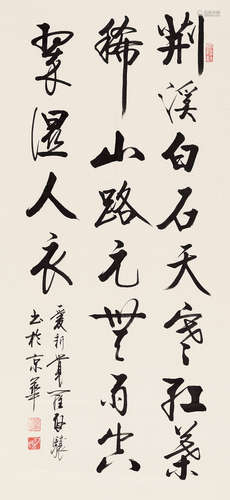 荆溪白石天寒紅葉
稀山路元無雨空
翠濕人衣
愛新覺羅啟驤
書於京華